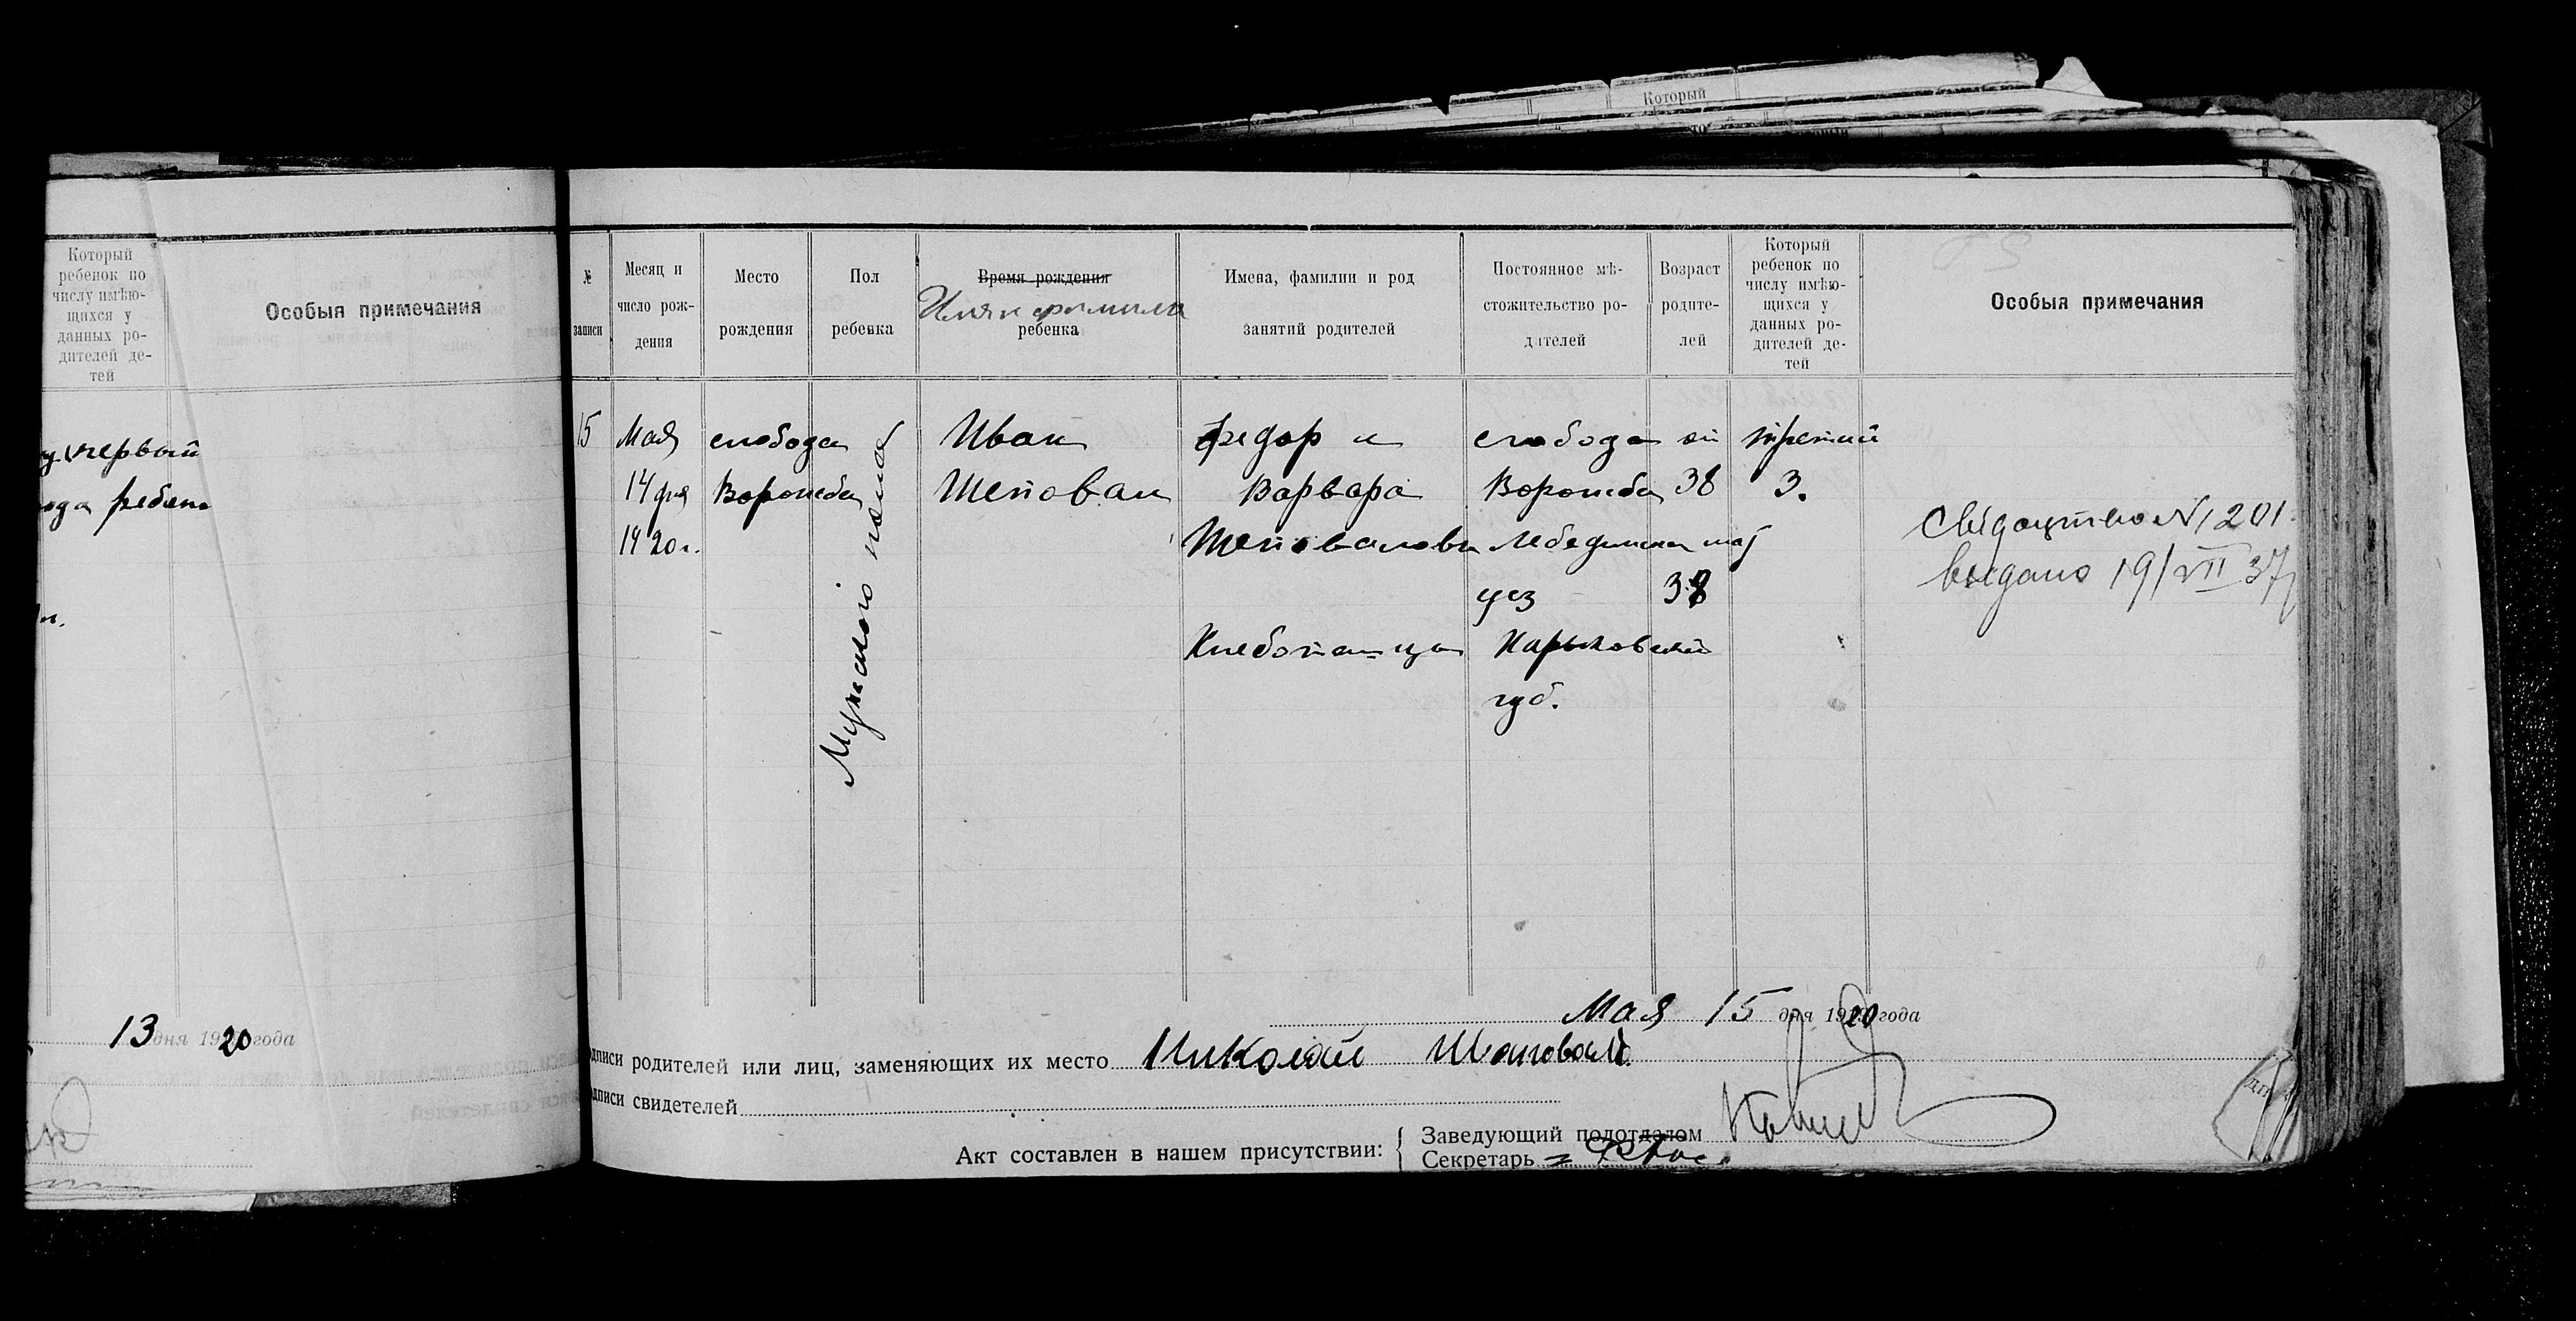 Который
Который
ребенок по
числу имѣю-
щихся у
данных ро-
дителей де-
тей
Особыя примечания
первый
13 дня 1920 года
№
записи
Месяц и
число рож-
дения
Место
рождения
Пол
ребенка
Время рождения
Имя и фамилия
ребенка
Имена, фамилии и род
занятий родителей
Постоянное мѣ-
стожительство ро-
дителей
Возраст
родите-
лей
Который
ребенок по
числу имѣю-
щихся у
данных ро-
дителей де-
тей
Особыя примечания
15
Мая
14 дня
1920 г.
слобода
Ворожба
Мужского пола
Иван
Шеповал
Федор и
Варвара
Шеповаловы
Хлебопашцы
слобода
Ворожба
Лебединск
уез
Харьковской
губ.
от
38
мат
38
третий
3.
Свідоцтво № 1201
выдано 19/VII 37
Мая 15 дня 1920 года
одписи родителей или лиц, заменяющих их место Николай Шаповал
одписи свидетелей
Акт составлен в нашем присутствии:
Заведующий подотделом
Секретарь